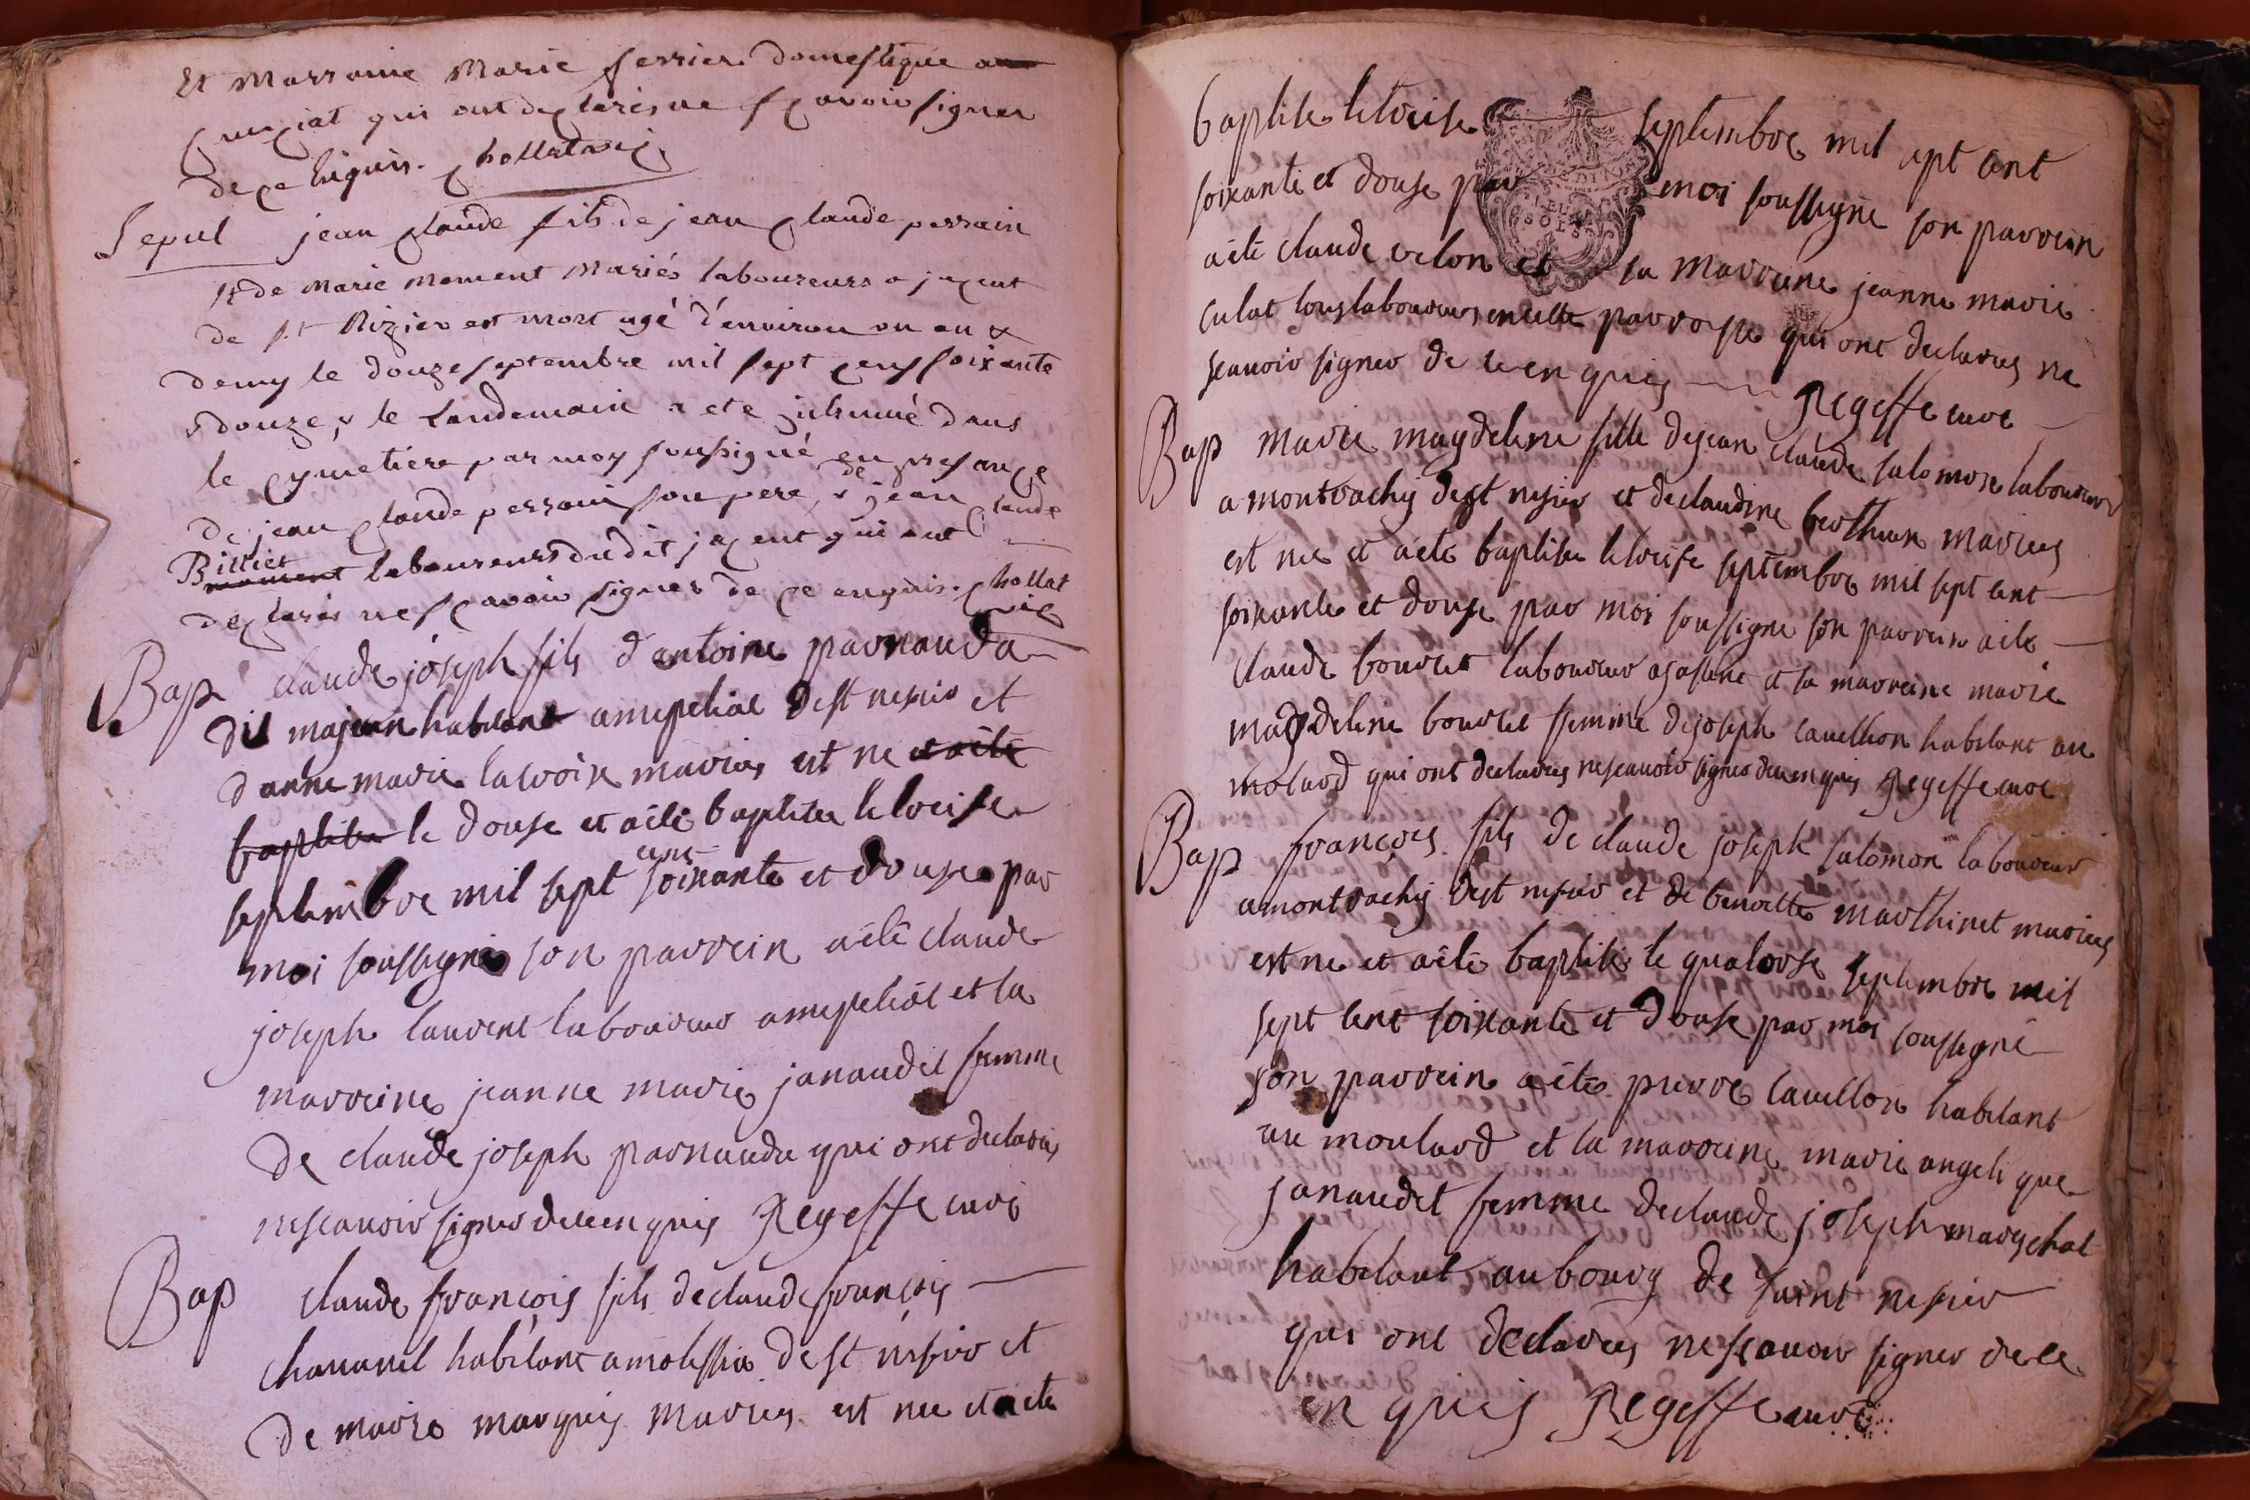 Et Marraine Marie ferrier domestique a
Cruziat qui ont declarés ne sçavoir signer
de ce enquis. chollat vic.
Sepul jean claude fils de jean claude perrain
& de Marie moment Mariés laboureurs a juçent
de st Rizier est mort agé d'environ un an &
demy le douze septembre mil sept cens soixante
& douze, & le Landemain a eté jnhumé dans
le cymetiere par moy soussigné en presance
de jean claude perrain son pere, & de jean claude
Billiet moment laboureurs dudit juçent qui ont
declarés ne sçavoir signer de ce enquis. chollat
vic
Bap claude joseph fils d'antoine parnauda
dit majean habitant amepeliat de st nesier et
danne marie lacroix maries est ne et a été
baptise le douse et a été baptise le treise
septembre mil sept cent soixante et douse par
moi soussigné son parrein a été claude
joseph laurent laboureur amepeliat et la
marreine jeanne marie janaudet femme
de claude joseph parnauda qui ont declares
ne scauoir signer de ce enquis Regeffe curé
Bap claude françois fils de claude françois
chauanel habitant amolissia de st nesier et
de marie marquis maries est ne et a ete
baptise le treise septembre mil sept cent
soixante et douse par moi soussigne son parrein
a été claude velon et sa marreine jeanne marie
culat tous laboureurs en cette parroisse qui ont declares ne
scauoir signer de ce enquis Regeffe cure
Bap marie magdelene fille de jean claude salomon laboureur
a montrachy de st nesier et de claudine berthion maries
est ne et a ete baptisee le treise septembre mil sept cent
soixante et douse par moi soussigne son parrein a ete
claude bourcet laboureur a et la marreine marie
magdelene bourcet femme de joseph cauellion habitant au
molard qui ont declares ne scauoir signer de ce enquis Regeffe cure
Bap françois fils de claude joseph salomon laboureur
a montrachy de st nesier et de benoitte marthinet maries
est ne et a été baptise le quatorse septembre mil
sept cent soixante et douse par moi soussigné
son parrein a été pierre cauellion habitant
au moulard et la marreine marie angelique
janaudet femme de claude joseph mareschal
habitant au bourg de saint nesier
qui ont declares ne scauoir signer de ce
enquis Regeffe curé